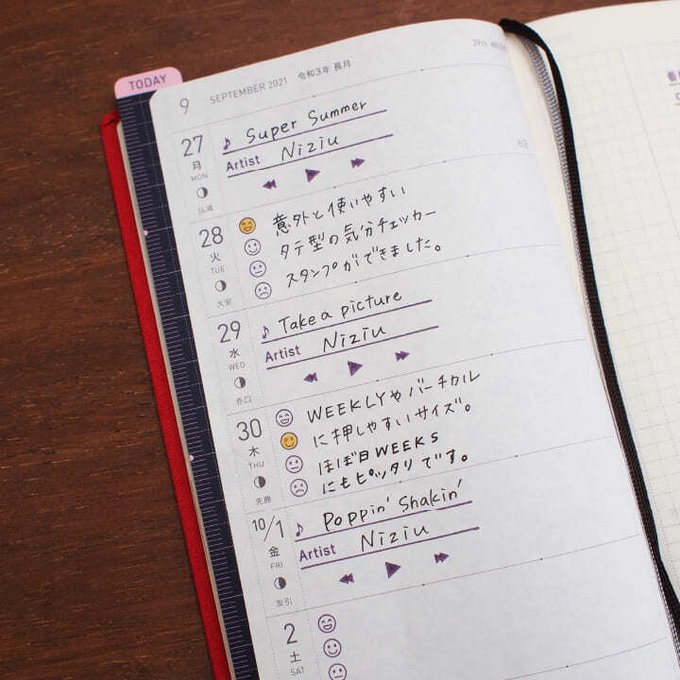 TODAY
9 SEPTEMBER 2021 令和3年 長月
27 月 MON 仏滅
♪ Super Summer
Artist Niziu
28 火 TUE 大安
意外と使いやすい
タテ型の気分チェッカー
スタンプができました。
29 水 WED 赤口
♪ Take a picture
Artist Niziu
30 木 THU 先勝
WEEKLYやバーチカル
に押しやすいサイズ。
ほぼ日WEEKS
にもピッタリです。
10/1 金 FRI 友引
♪ Poppin' Shakin'
Artist Niziu
2 土 SAT